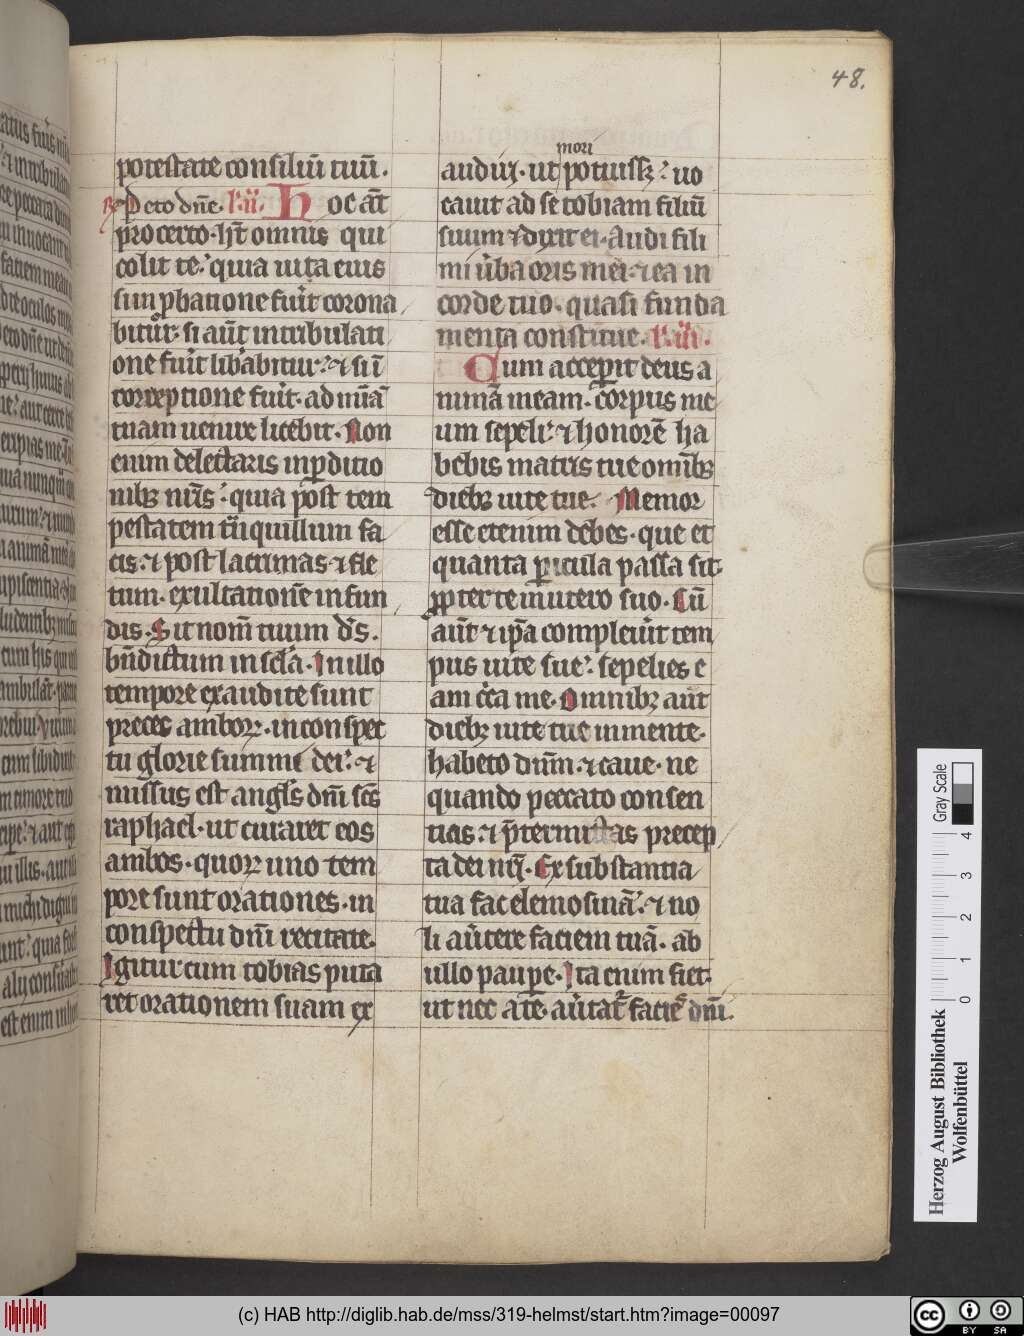 48.
potestate consiliū tuū.
R̃ Peto dn̄e. l'.ii. Hoc aūt
pro certo · ht̄ omnis qui
colit te .' quia uita eius
si in p̱batione fuīt corona
bitur̄ · si aūt in tribulati
one fuīt lib̄abitur .' ⁊ si ī
correptione fuīt · ad mīā
tuam uenire licebit · Non
enim delectaris in p̱ditio
nibꝫ nr̄is .' quia post tem
pestatem tn̄quillum fa
cis .' ⁊ post lacrimas ⁊ fle
tum · exultationē infun
dis · Sit nom̄ tuum ds̄.
bn̄dictum in sc̄la · In illo
tempore exaudite sunt
preces amboꝝ · in conspec
tu glorie summi dei .' ⁊
missus est angls̄ dn̄i sc̄s
raphael · ut curaret eos
ambos · quoꝝ uno tem
pore sunt orationes · in
conspectu dn̄i recitate.
Igitur cum tobias puta
ret orationem suam ex
mori
audiri · ut potuissꝫ .' uo
cauit ad se tobiam filiū
suum ⁊ dixit ei · Audi fili
mi ūba oris mei .' ⁊ ea in
corde tuo · quasi funda
menta constitue. l'.iii.
Cum acceperit deus a
nimā meam · corpus me
um sepeli .' ⁊ honorē ha
bebis matris tue omībꝫ
diebꝫ uite tue. Memor
esse etenim debes · que et
quanta p̱icula passa sit
ꝓpter te in utero suo · Cū
aūt ⁊ ip̄a compleuīt tem
pus uite sue .' sepelies e
am c̄ca me · Omnibꝫ aūt
diebꝫ uite tue in mente
habeto dn̄m .' ⁊ caue · ne
quando peccato consen
tias .' ⁊ p̄termittas precep
ta dei nr̄i · Ex substantia
tua fac elemosinā .' ⁊ no
li aūtere faciem tuā · ab
ullo paupe · Ita enim fiet
ut nec a te · aūtat̄ facies dn̄i.
Herzog August Bibliothek
Wolfenbüttel
0 1 2 3 4
Gray Scale
(c) HAB http://diglib.hab.de/mss/319-helmst/start.htm?image=00097
cc BY SA